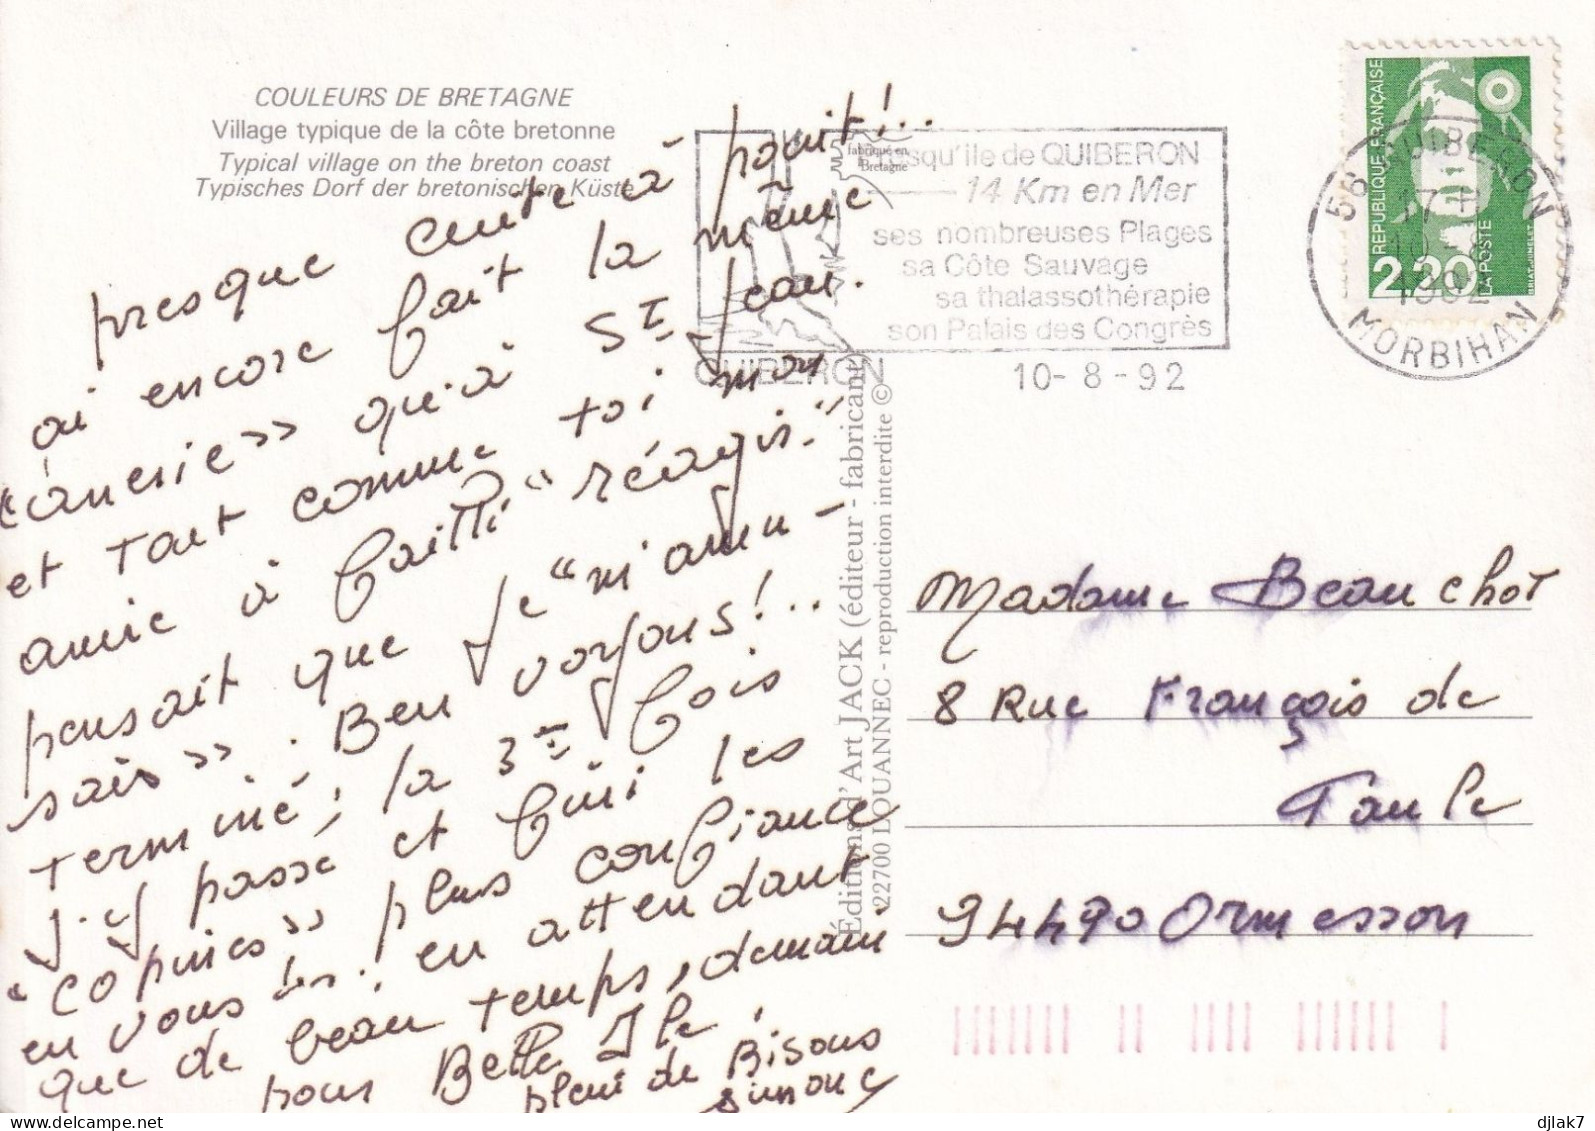 COULEURS DE BRETAGNE
Village typique de la côte bretonne
Typical village on the breton coast
Typisches Dorf der bretonischen Küste
presque cuite à point!..
ai encore fait la même
"ânerie" qu'à St Jean.
et tout comme toi mon
amie à failli "réagir."
pensait que je "m'amu-
sais". Ben voyons!..
terminé, la 3e fois
j'y passe et fini les
"copines" plus confiance
en vous ! en attendant
que de beau temps, demain
pour Belle Ile.
plein de Bisous
Simone
fabriqué en
Bretagne
Presqu'ile de QUIBERON
14 Km en Mer
ses nombreuses Plages
sa Côte Sauvage
sa thalassothérapie
son Palais des Congrès
QUIBERON
10-8-92
56 QUIBERON
17 H
10-8
1992
MORBIHAN
RÉPUBLIQUE FRANÇAISE
2,20
LA POSTE
BRIAT-JUMELET
Éditions d'Art JACK (éditeur - fabricant)
22700 LOUANNEC - reproduction interdite ©
Madame Beauchot
8 Rue François de
Taule
94490 Ormesson
djlak7